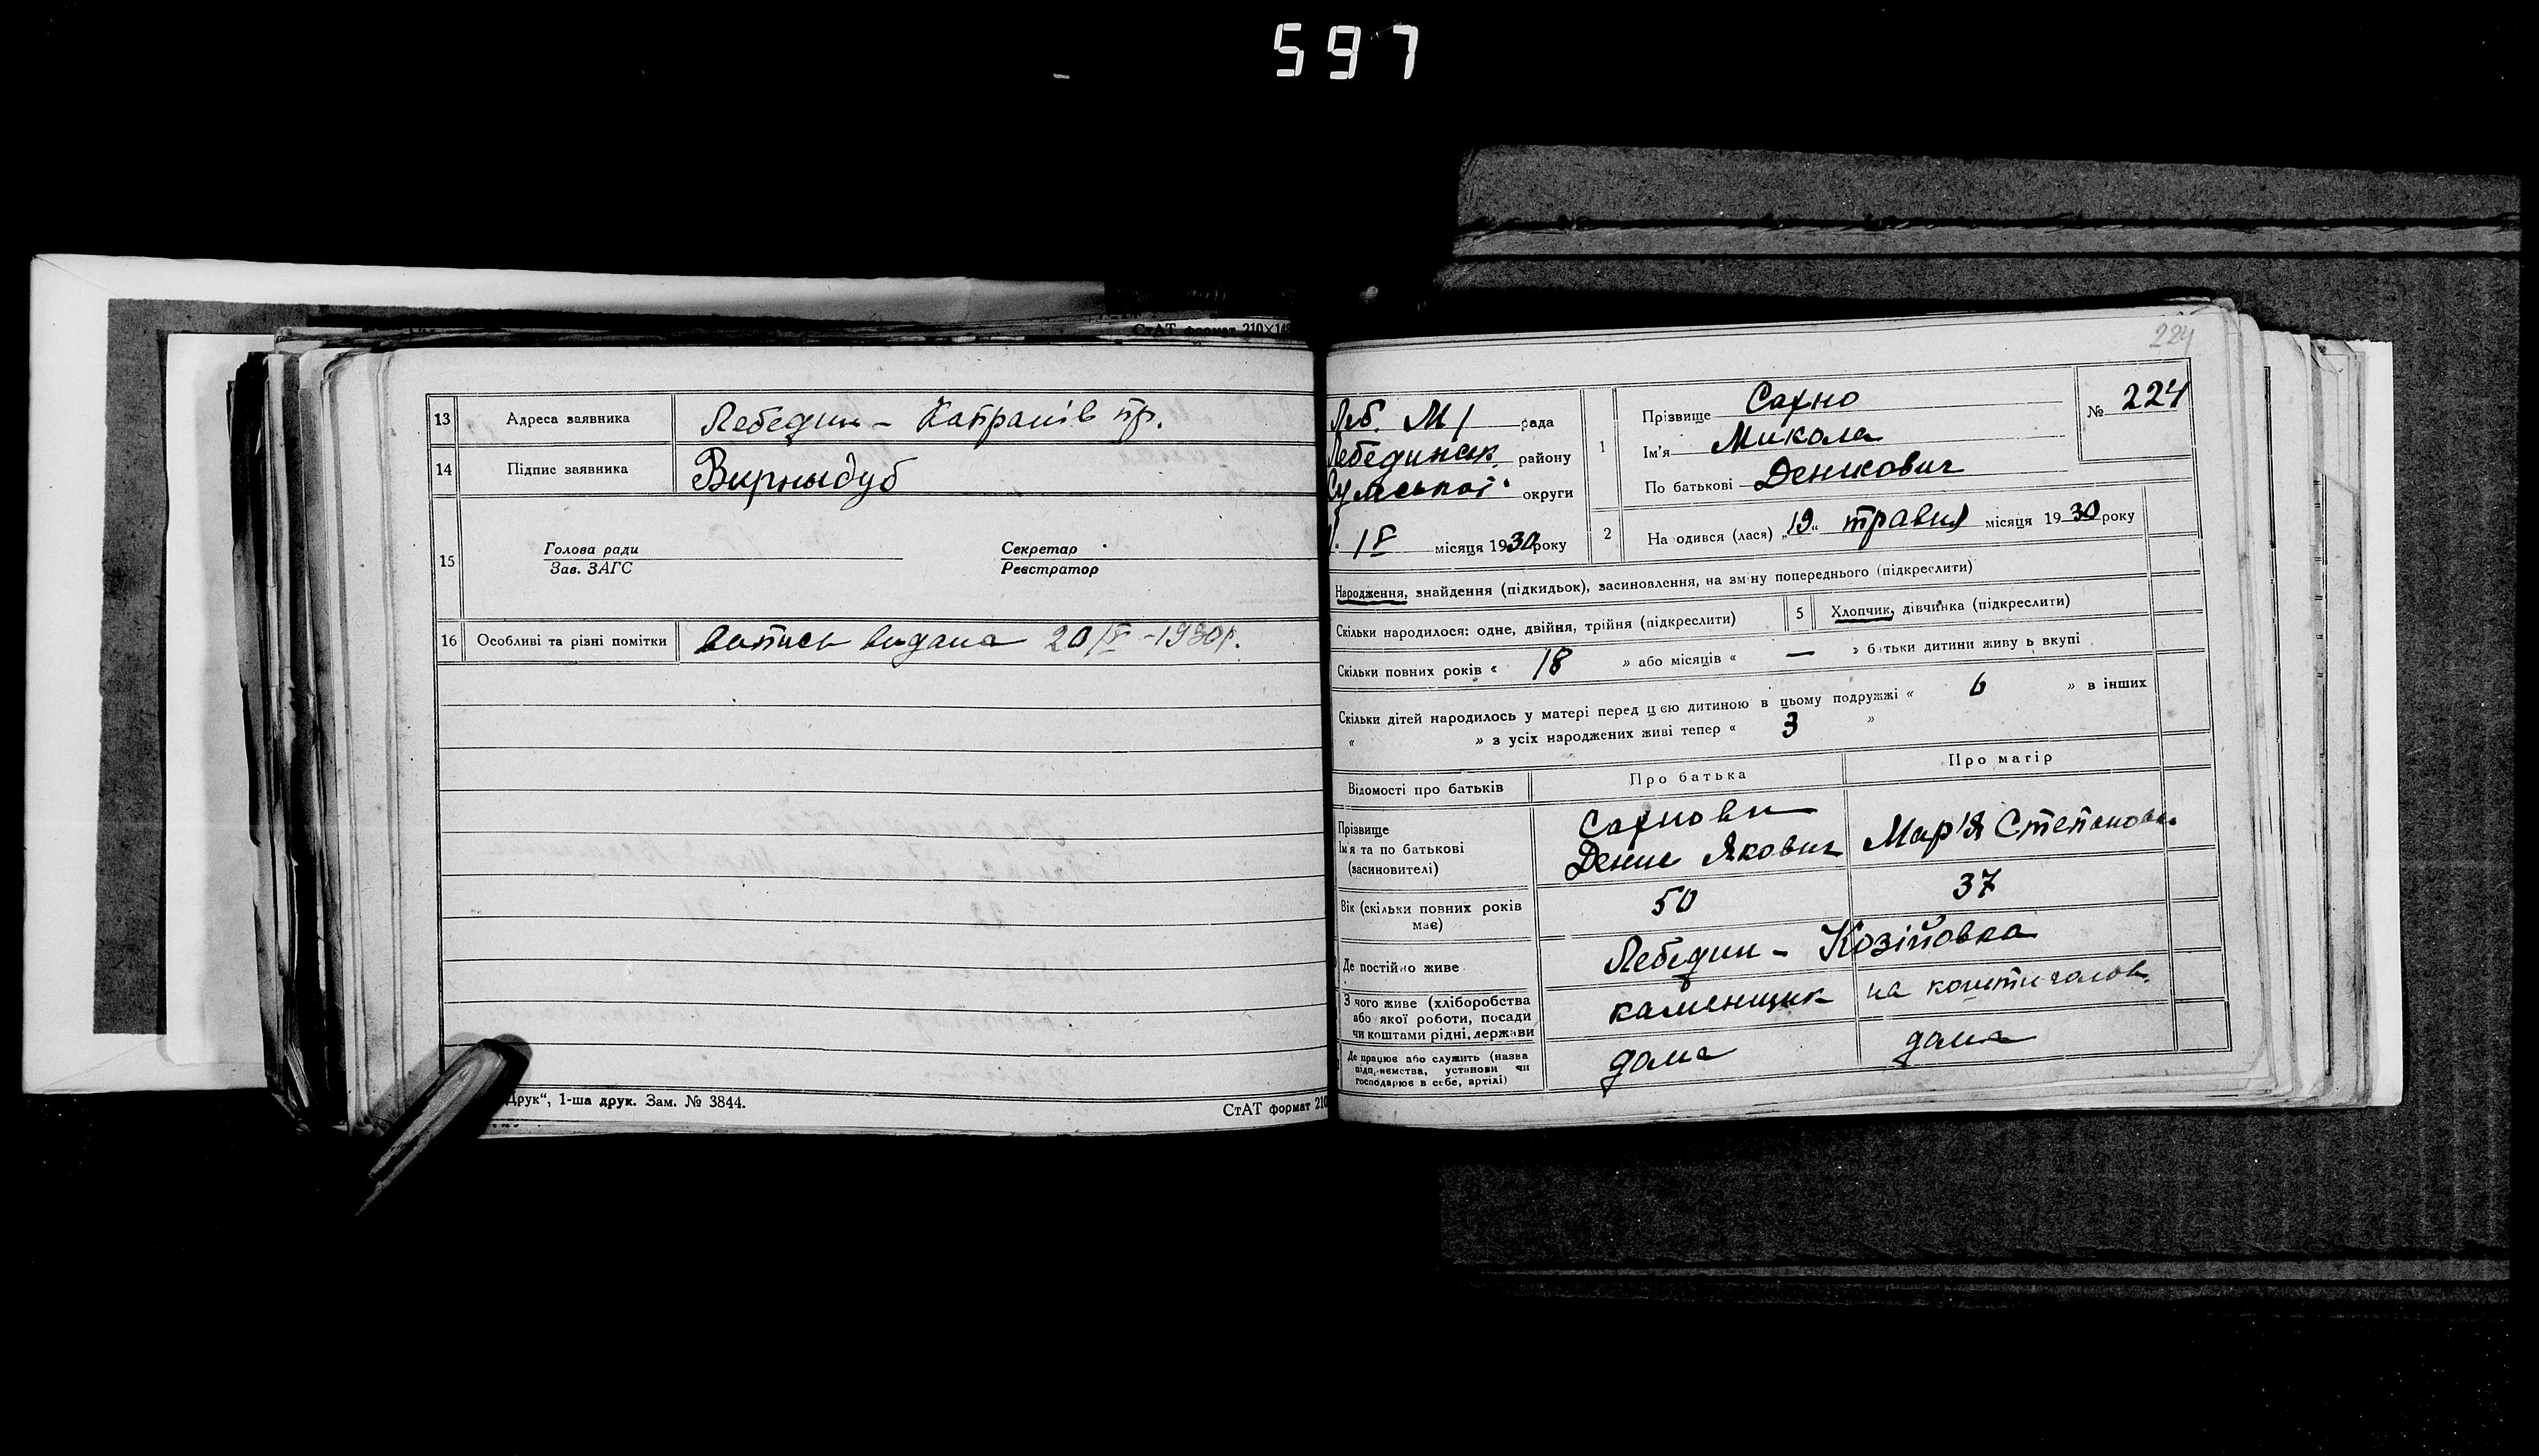 597
СтАТ формат 210×148
13 Адреса заявника Лебедин – Катранів пр.
14 Підпис заявника Вирныдуб
15 Голова ради Секретар
Зав. ЗАГС Реєстратор
16 Особливі та різні помітки випись видана 20/V -1930р.
Друк“, 1-ша друк. Зам. № 3844.
СтАТ формат 210
224
Леб. М рада
Лебединськ. району
Сумської округи
18 місяця 1930 року
1 Прізвище Сахно
№ 224
Ім'я Микола
По батькові Денисович
2 На одився (лася) „19“ травня місяця 1930 року
Народження, знайдення (підкидьок), засиновлення, на зміну попереднього (підкреслити)
Скільки народилося: одне, двійня, трійня (підкреслити) 5 Хлопчик, дівчинка (підкреслити)
Скільки повних років « 18 » або місяців « — » батьки дитини живуть вкупі
Скільки дітей народилось у матері перед цією дитиною в цьому подружжі « 6 » в інших
« » з усіх народжених живі тепер « 3 »
Відомості про батьків Про батька Про матір
Прізвище Сахнови
Ім'я та по батькові Денис Якович Мар'я Степановн.
(засиновителі)
Вік (скільки повних років 50 37
має)
Де постійно живе Лебедин – Козійовка
З чого живе (хліборобства каменщик на кошти голов.
або якої роботи, посади
чи коштами рідні, держави
Де працює або служить (назва дома дома
підприємства, установи чи
господарює в себе, артілі)